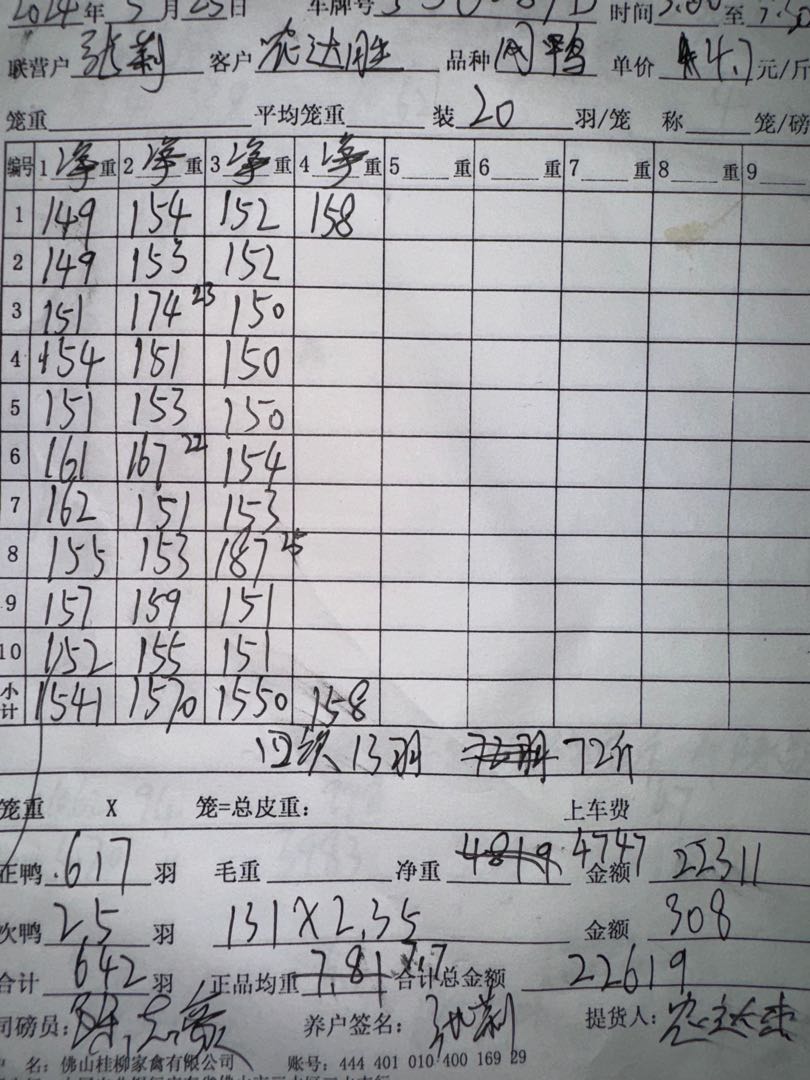 2024年 5月25日 车牌号 时间 至
联营户 张莉 客户 农达用生 品种 肉鸭 单价 4.7 元/斤
笼重 平均笼重 装 20 羽/笼 称 笼/磅
编号 1 净 重 2 净 重 3 净 重 4 净 重 5 重 6 重 7 重 8 重 9
1 149 154 152 158
2 149 153 152
3 151 174 23 150
4 154 151 150
5 151 153 150
6 161 167 22 154
7 162 151 153
8 155 153 187 25
9 157 159 151
10 152 155 151
小计 1541 1570 1550 158
回放 13羽 72斤
笼重 X 笼=总皮重: 上车费
正鸭 617 羽 毛重 净重 4819 4747 金额 22311
次鸭 25 羽 131X2.35 金额 308
合计 642 羽 正品均重 7.81 7.7 合计总金额 22619
司磅员: 养户签名: 张莉 提货人:
户 名: 佛山桂柳家禽有限公司 账号: 444 401 010 400 169 29